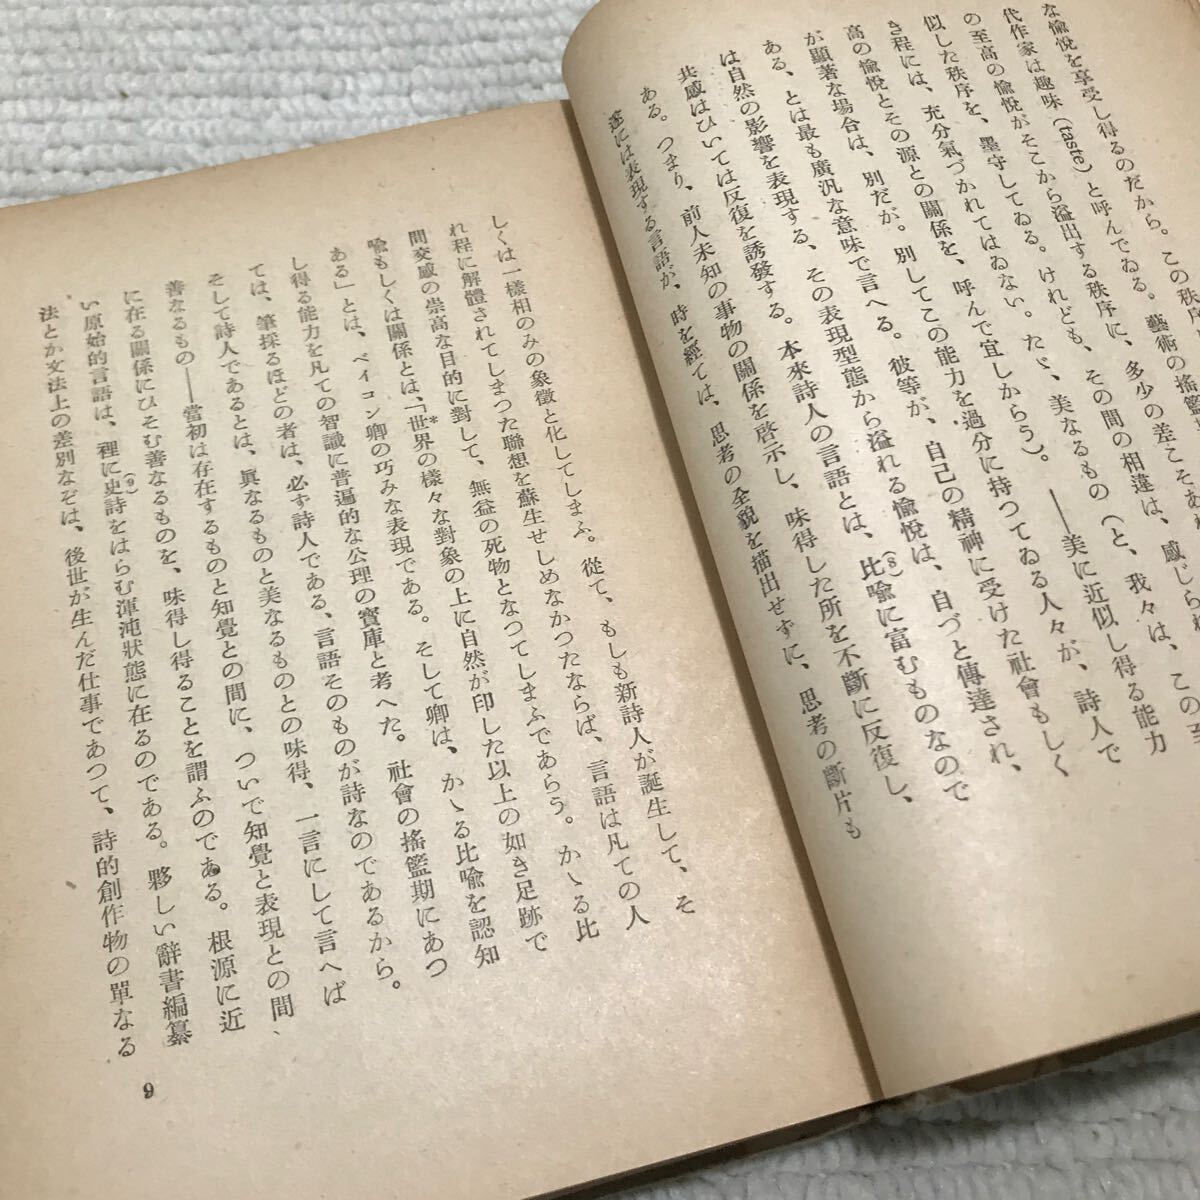 な愉悅を享受し得るのだから。この秩序
代作家は趣味(taste)と呼んでゐる。藝術の搖籃
の至高の愉悅がそこから溢出する秩序に、多少の差こそあれ
似した秩序を、墨守してゐる。けれども、その間の相違は、感じられ
き程には、充分氣づかれてはゐない。たゞ、美なるもの(と、我々は、この至
高の愉悅とその源との關係を、呼んで宜しからう)。――美に近似し得る能力
が顯著な場合は、別だが。別してこの能力を過分に持つてゐる人々が、詩人で
ある、とは最も廣汎な意味で言へる。彼等が、自己の精神に受けた社會もしく
は自然の影響を表現する、その表現型態から溢れる愉悅は、自づと傳達され、
共感はひいては反復を誘發する。本來詩人の言語とは、比喩に富むものなので
(8)
ある。つまり、前人未知の事物の關係を啓示し、味得した所を不斷に反復し、
遂には表現する言語が、時を經ては、思考の全貌を描出せずに、思考の斷片も
しくは一樣相のみの象徵と化してしまふ。從て、もしも新詩人が誕生して、そ
れ程に解體されてしまつた聯想を蘇生せしめなかつたならば、言語は凡ての人
間交感の崇高な目的に對して、無益の死物となつてしまふであらう。かゝる比
喩もしくは關係とは、「世界の樣々な對象の上に自然が印した以上の如き足跡で
*
ある」とは、ベイコン卿の巧みな表現である。そして卿は、かゝる比喩を認知
し得る能力を凡ての智識に普遍的な公理の寶庫と考へた。社會の搖籃期にあつ
ては、筆採るほどの者は、必ず詩人である、言語そのものが詩なのであるから。
そして詩人であるとは、眞なるものと美なるものとの味得、一言にして言へば
善なるもの――當初は存在するものと知覺との間に、ついで知覺と表現との間、
に在る關係にひそむ善なるものを、味得し得ることを謂ふのである。根源に近
い原始的言語は、裡に史詩をはらむ渾沌狀態に在るのである。夥しい辭書編纂
(9)
法とか文法上の差別なぞは、後世が生んだ仕事であつて、詩的創作物の單なる
9